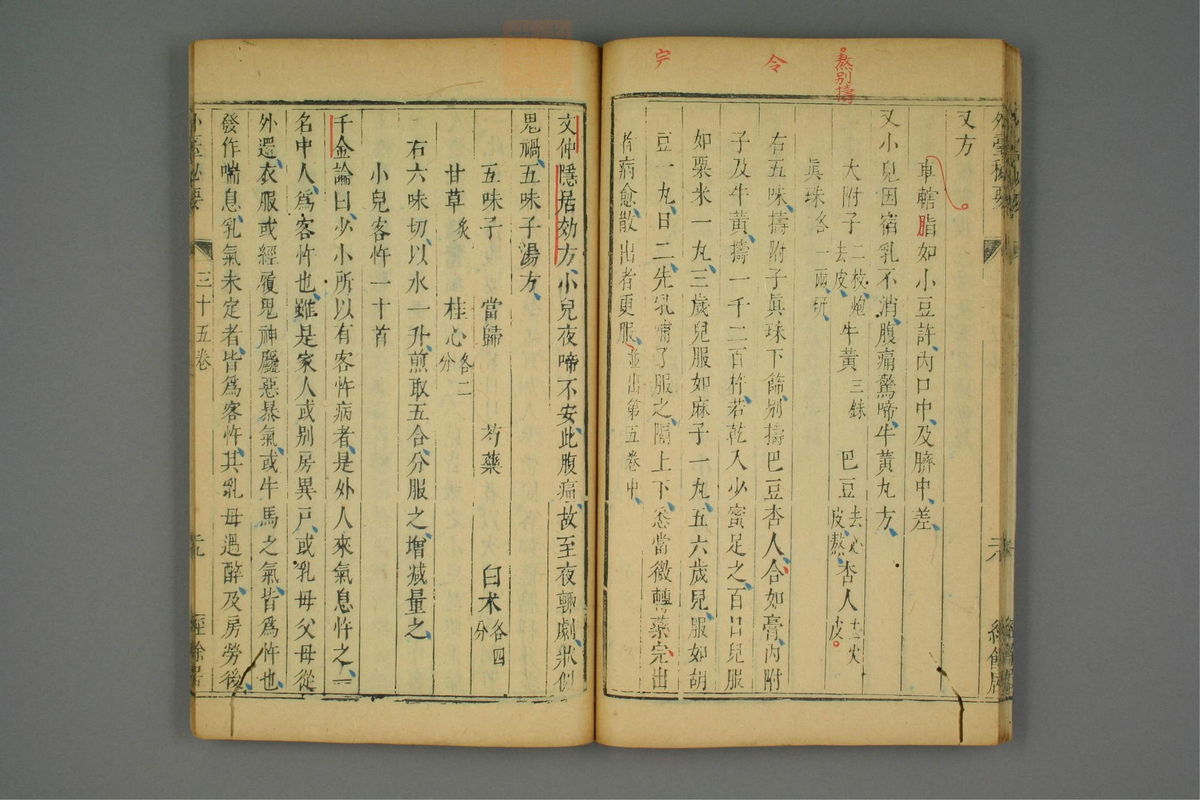 熬别擣
令
宀
又方
車轄脂如小豆許內口中及臍中差
又小兒因宿乳不消腹痛驚啼牛黃丸方
大附子二枚炮去皮 牛黃三銖 巴豆去心皮熬 杏人十二尖皮
眞珠各一兩研
右五味擣附子眞珠下篩别擣巴豆杏人合如膏內附
子及牛黃擣一千二百杵若乾入少蜜足之百日兒服
如栗米一丸三歲兒服如麻子一丸五六歲兒服如胡
豆一丸日二先乳哺了服之隔上下悉當微轉藥完出
者病愈散出者更服並出第五卷中
文仲隱居効方小兒夜啼不安此腹痛故至夜輒劇狀似
鬼禍五味子湯方
五味子 當歸 芍藥 白术各四分
甘草炙 桂心各二分
右六味切以水一升煎取五合分服之增减量之
小兒客忤一十首
千金論曰少小所以有客忤病者是外人來氣息忤之一
名中人爲客忤也雖是家人或别房異戶或乳母父母從
外還衣服或經履鬼神麤惡暴氣或牛馬之氣皆爲忤也
發作喘息乳氣未定者皆爲客忤其乳母遇醉及房勞後
外臺秘要 三十五卷 經餘居